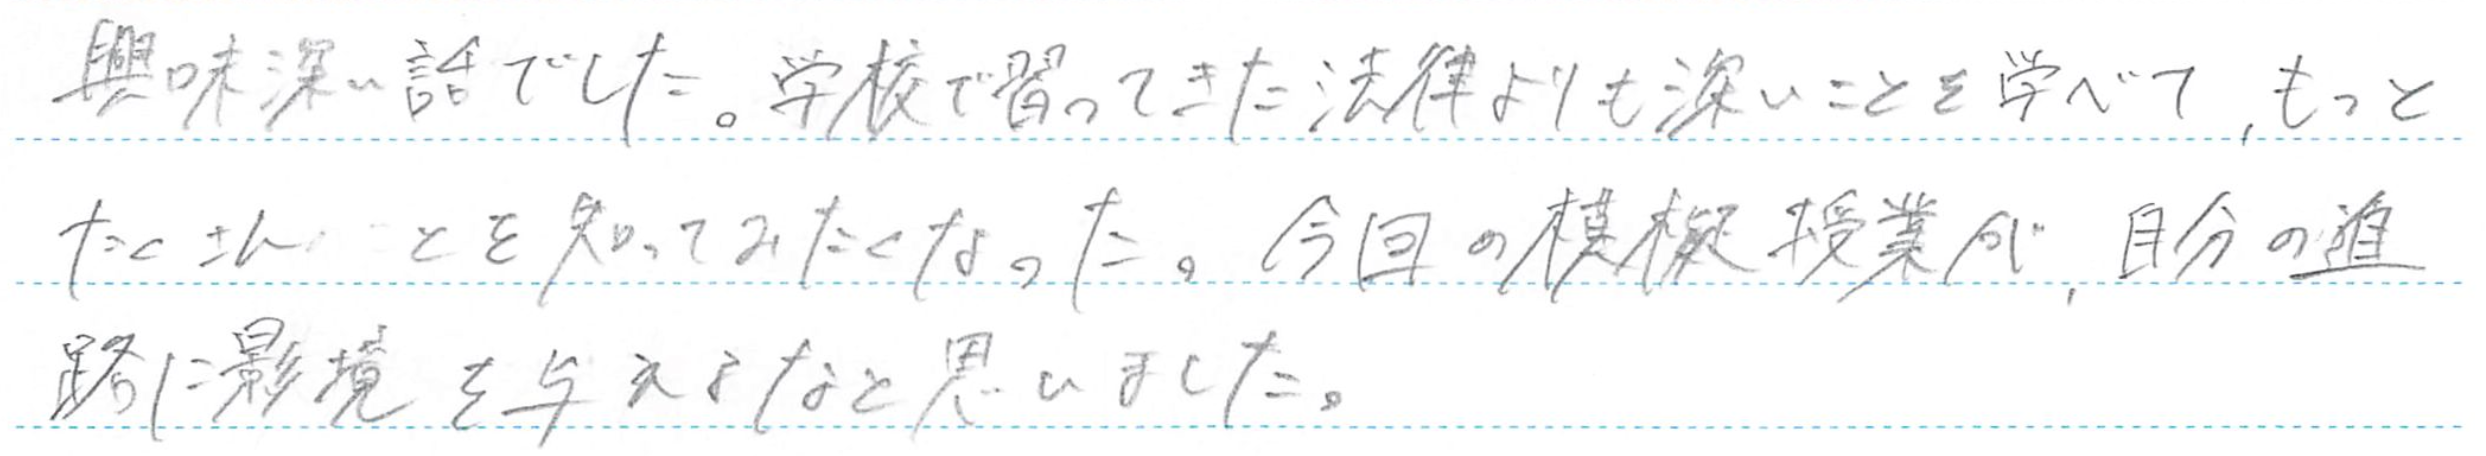 興味深い話でした。学校で習ってきた法律よりも深いことを学べて,もっと
たくさんことを知ってみたくなった。今回の模擬授業が,自分の進
路に影境を与えるなと思いました。